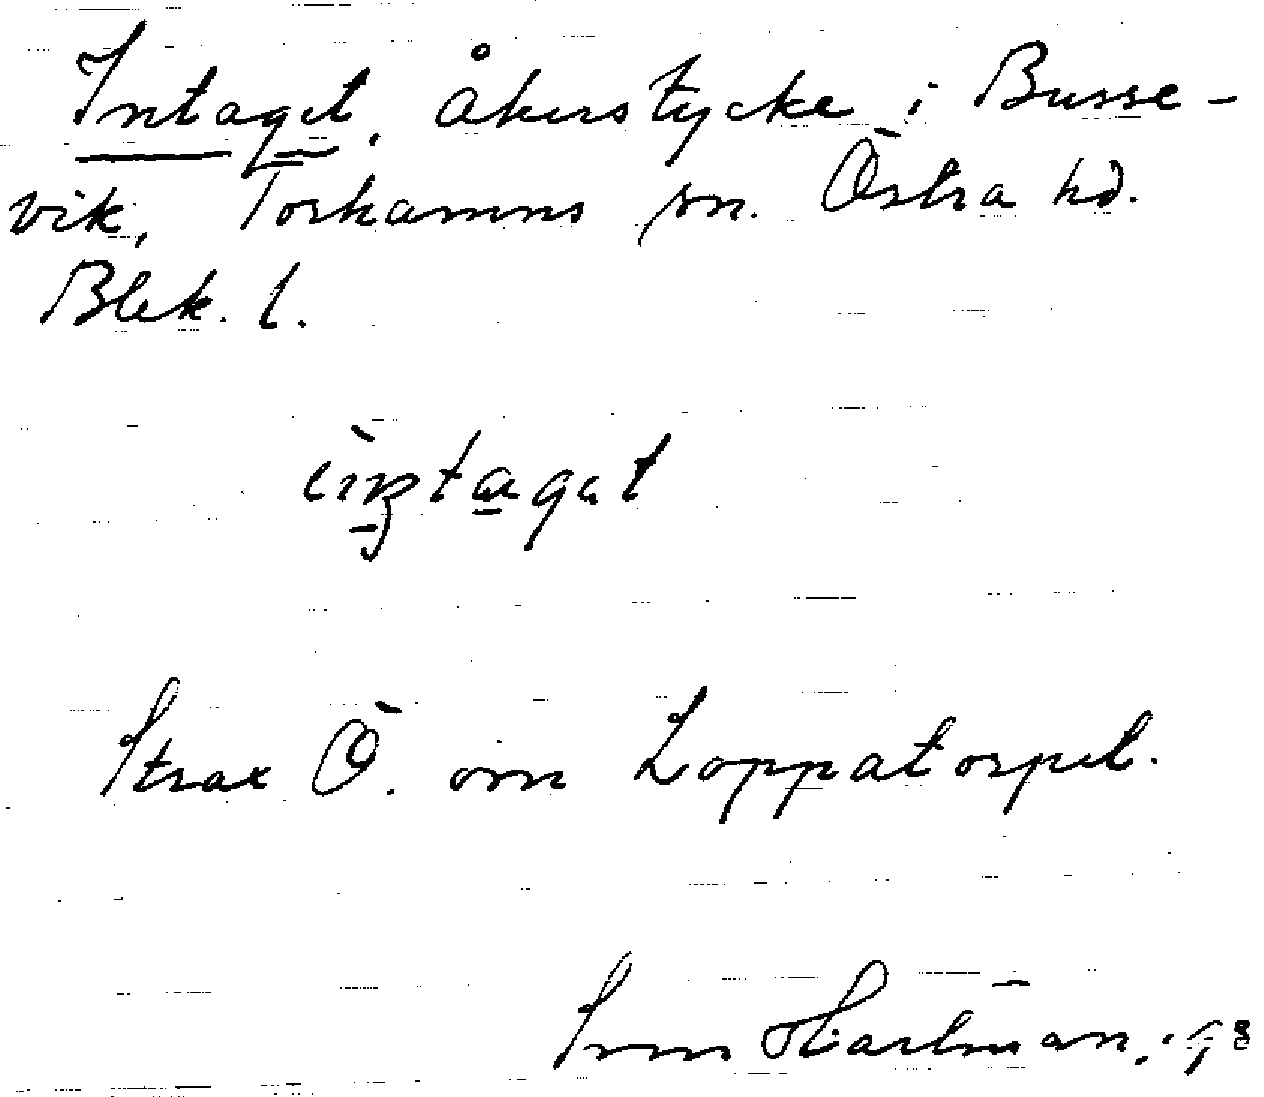 Intaget, åkerstycke i Busse-
vik, Torhamns sn. Östra hd.
Blek. l.
Strax Ö. om Loppatorpet.
Sven Hartman.